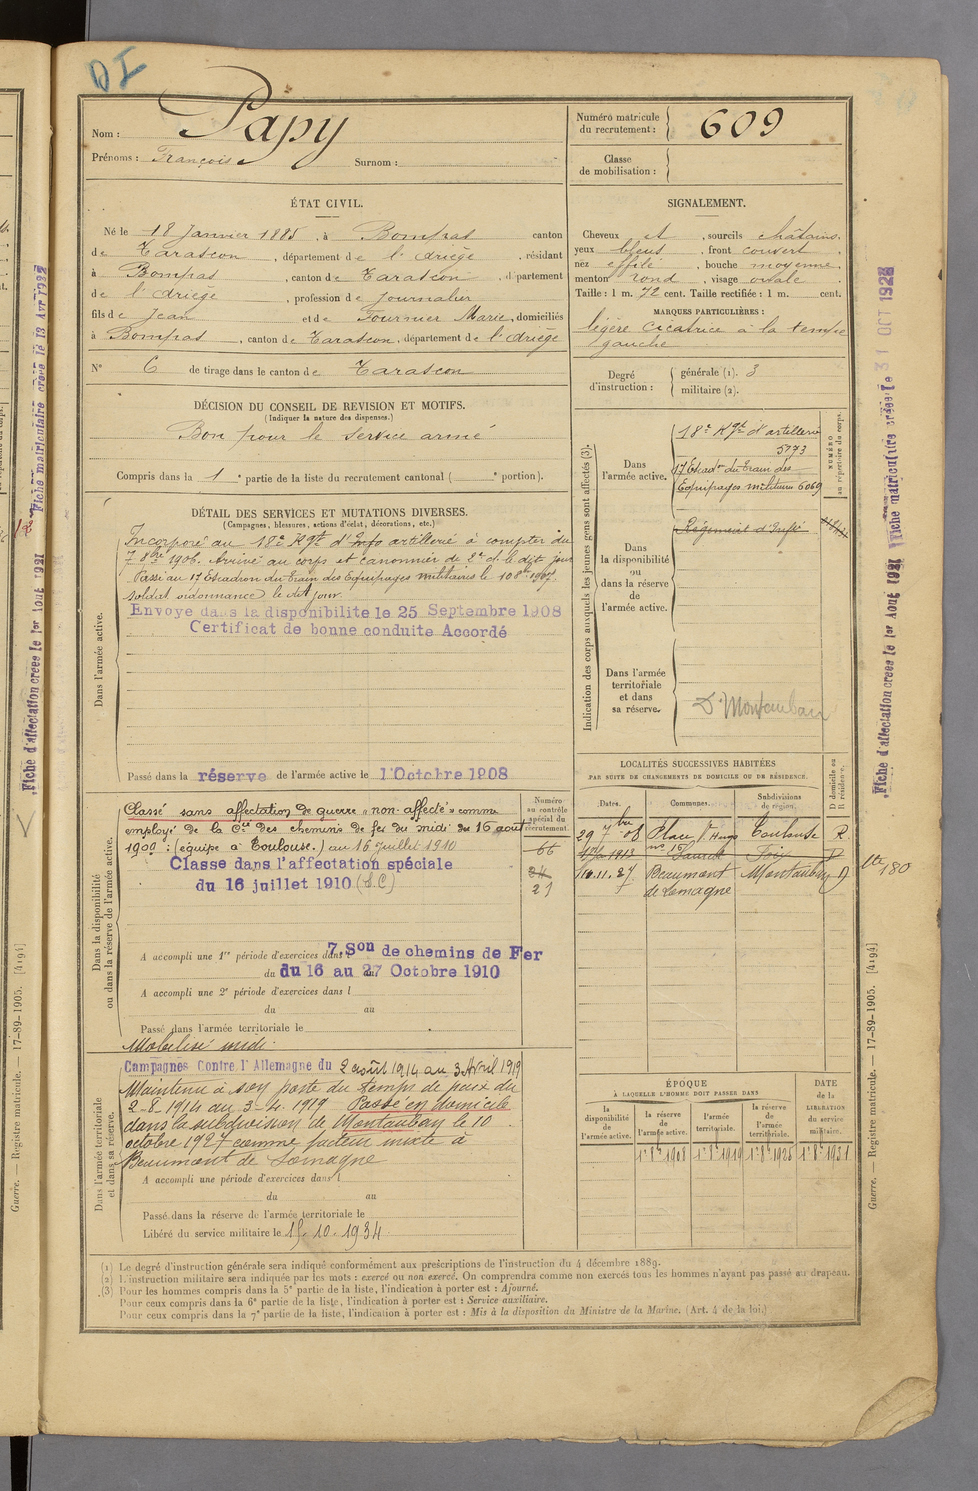 DI
Nom : Papy
Prénoms : François Surnom :
Numéro matricule du recrutement : 609
Classe de mobilisation :
ÉTAT CIVIL.
Né le 18 Janvier 1885, à Bompas canton
de Tarascon, département de l'Ariège, résidant
à Bompas, canton de Tarascon département
de l'Ariège, profession de Journalier
fils de Jean et de Fournier Marie, domiciliés
à Bompas, canton de Tarascon, département de l'Ariège
N° 6 de tirage dans le canton de Tarascon
SIGNALEMENT.
Cheveux et, sourcils châtains
yeux bleus, front couvert
nez effilé, bouche moyenne
menton rond, visage ovale
Taille : 1 m. 72 cent. Taille rectifiée : 1 m. cent.
MARQUES PARTICULIÈRES :
légère cicatrice à la tempe
gauche
Degré d'instruction : générale (1). 3
militaire (2).
DÉCISION DU CONSEIL DE REVISION ET MOTIFS.
(Indiquer la nature des dispenses.)
Bon pour le service armé
Compris dans la 1e partie de la liste du recrutement cantonal ( portion).
DÉTAIL DES SERVICES ET MUTATIONS DIVERSES.
(Campagnes, blessures, actions d'éclat, décorations, etc.)
Dans l'armée active.
Incorporé au 18e Rgt d'Infie artillerie à compter du
7 8bre 1906. Arrivé au corps et canonnier de 2e cl. le dit jour
Passé au 17 Escadron du Train des Equipages militaires le 10 8bre 1907.
soldat ordonnance le dit jour.
Envoye dans la disponibilite le 25 Septembre 1908
Certificat de bonne conduite Accordé
Passé dans la réserve de l'armée active le 1 Octobre 1908
Indication des corps auxquels les jeunes gens sont affectés (3).
NUMÉRO au répertoire du corps.
Dans l'armée active.
18e Rgt d'artillerie
5773
17 Escadon du Train des
Equipages militaires 6069
Dans la disponibilité ou dans la réserve de l'armée active.
Régiment d'Infie
Dans l'armée territoriale et dans sa réserve.
Dt Montauban
Dans la disponibilité ou dans la réserve de l'armée active.
Numéro au contrôle spécial du recrutement.
Classé sans affectation de guerre "non-affecté" comme
employé de la Cie des chemins de fer du midi du 16 aout
1909 : (équipe à Toulouse.) au 16 Juillet 1910
66
Classe dans l'affectation spéciale
du 16 juillet 1910 (S.C)
21
A accompli une 1re période d'exercices dans l 7. Son de chemins de Fer
du 16 au 27 Octobre 1910
A accompli une 2e période d'exercices dans l
du au
Passé dans l'armée territoriale le
Mobilisé midi.
Dans l'armée territoriale et dans sa réserve.
Campagnes Contre l'Allemagne du 2 août 1914 au 3 Avril 1919
Maintenu à son poste du temps de paix du
2-8-1914 au 3-4-1919 Passé en domicile
dans la subdivision de Montauban le 10
octobre 1927 comme facteur mixte à
Beaumont de Lomagne
A accompli une période d'exercices dans l
du au
Passé dans la réserve de l'armée territoriale le
Libéré du service militaire le 15.10.1934
LOCALITÉS SUCCESSIVES HABITÉES
PAR SUITE DE CHANGEMENTS DE DOMICILE OU DE RÉSIDENCE.
Dates. Communes. Subdivisions de région. D domicile ou R résidence.
29 7bre 08 Toulouse R
1913 Foix D
10.11.27 Beaumont de Lomagne Montauban D
180
ÉPOQUE
À LAQUELLE L'HOMME DOIT PASSER DANS
DATE de la LIBÉRATION du service militaire.
la disponibilité de l'armée active.
la réserve de l'armée active.
l'armée territoriale.
la réserve de l'armée territoriale.
1er 8bre 1908 1er 8bre 1919 1er 8bre 1925 1er 8bre 1931
(1) Le degré d'instruction générale sera indiqué conformément aux prescriptions de l'instruction du 4 décembre 1889.
(2) L'instruction militaire sera indiquée par les mots : exercé ou non exercé. On comprendra comme non exercés tous les hommes n'ayant pas passé au drapeau.
(3) Pour les hommes compris dans la 5e partie de la liste, l'indication à porter est : Ajourné.
Pour ceux compris dans la 6e partie de la liste, l'indication à porter est : Service auxiliaire.
Pour ceux compris dans la 7e partie de la liste, l'indication à porter est : Mis à la disposition du Ministre de la Marine. (Art. 4 de la loi.)
Fiche d'affectation creee le 1er Aout 1921
Fiche matriculaire creee le 13 Avr 1932
Guerre. — Registre matricule. — 17-89-1905. [4194]
Fiche d'affectation creee le 1er Aout 1921
Fiche matriculaire creee le 31 OCT 1928
Guerre. — Registre matricule. — 17-89-1905. [4194]